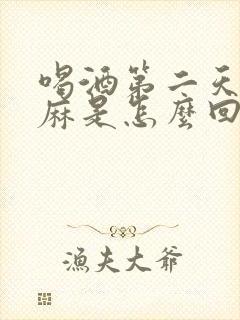 喝酒第二天
麻是怎麼回
漁夫大爺